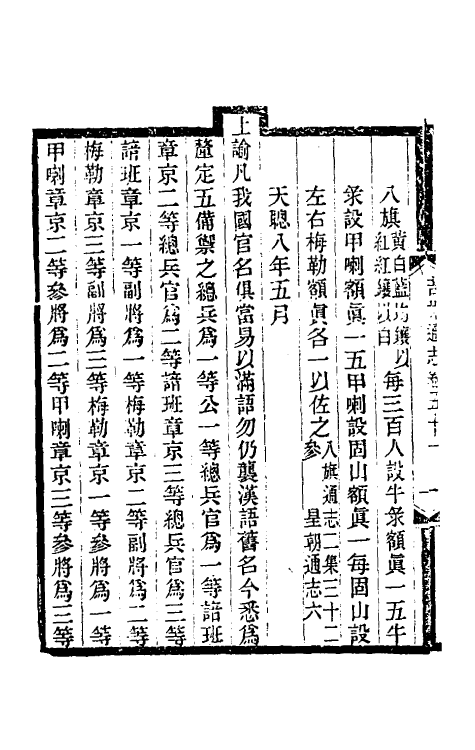 八旗黃白藍均鑲以紅紅鑲以白每三百人設牛彔額眞一五牛
彔設甲喇額眞一五甲喇設固山額眞一每固山設
左右梅勒額眞各一以佐之八旗通志二集三十二參皇朝通志六
天聰八年五月
上諭凡我國官名俱當易以滿語勿仍襲漢語舊名今悉爲
釐定五備禦之總兵爲一等公一等總兵官爲一等諳班
章京二等總兵官爲二等諳班章京三等總兵官爲三等
諳班章京一等副將爲一等梅勒章京二等副將爲二等
梅勒章京三等副將爲三等梅勒章京一等參將爲一等
甲喇章京二等參將爲二等甲喇章京三等參將爲三等